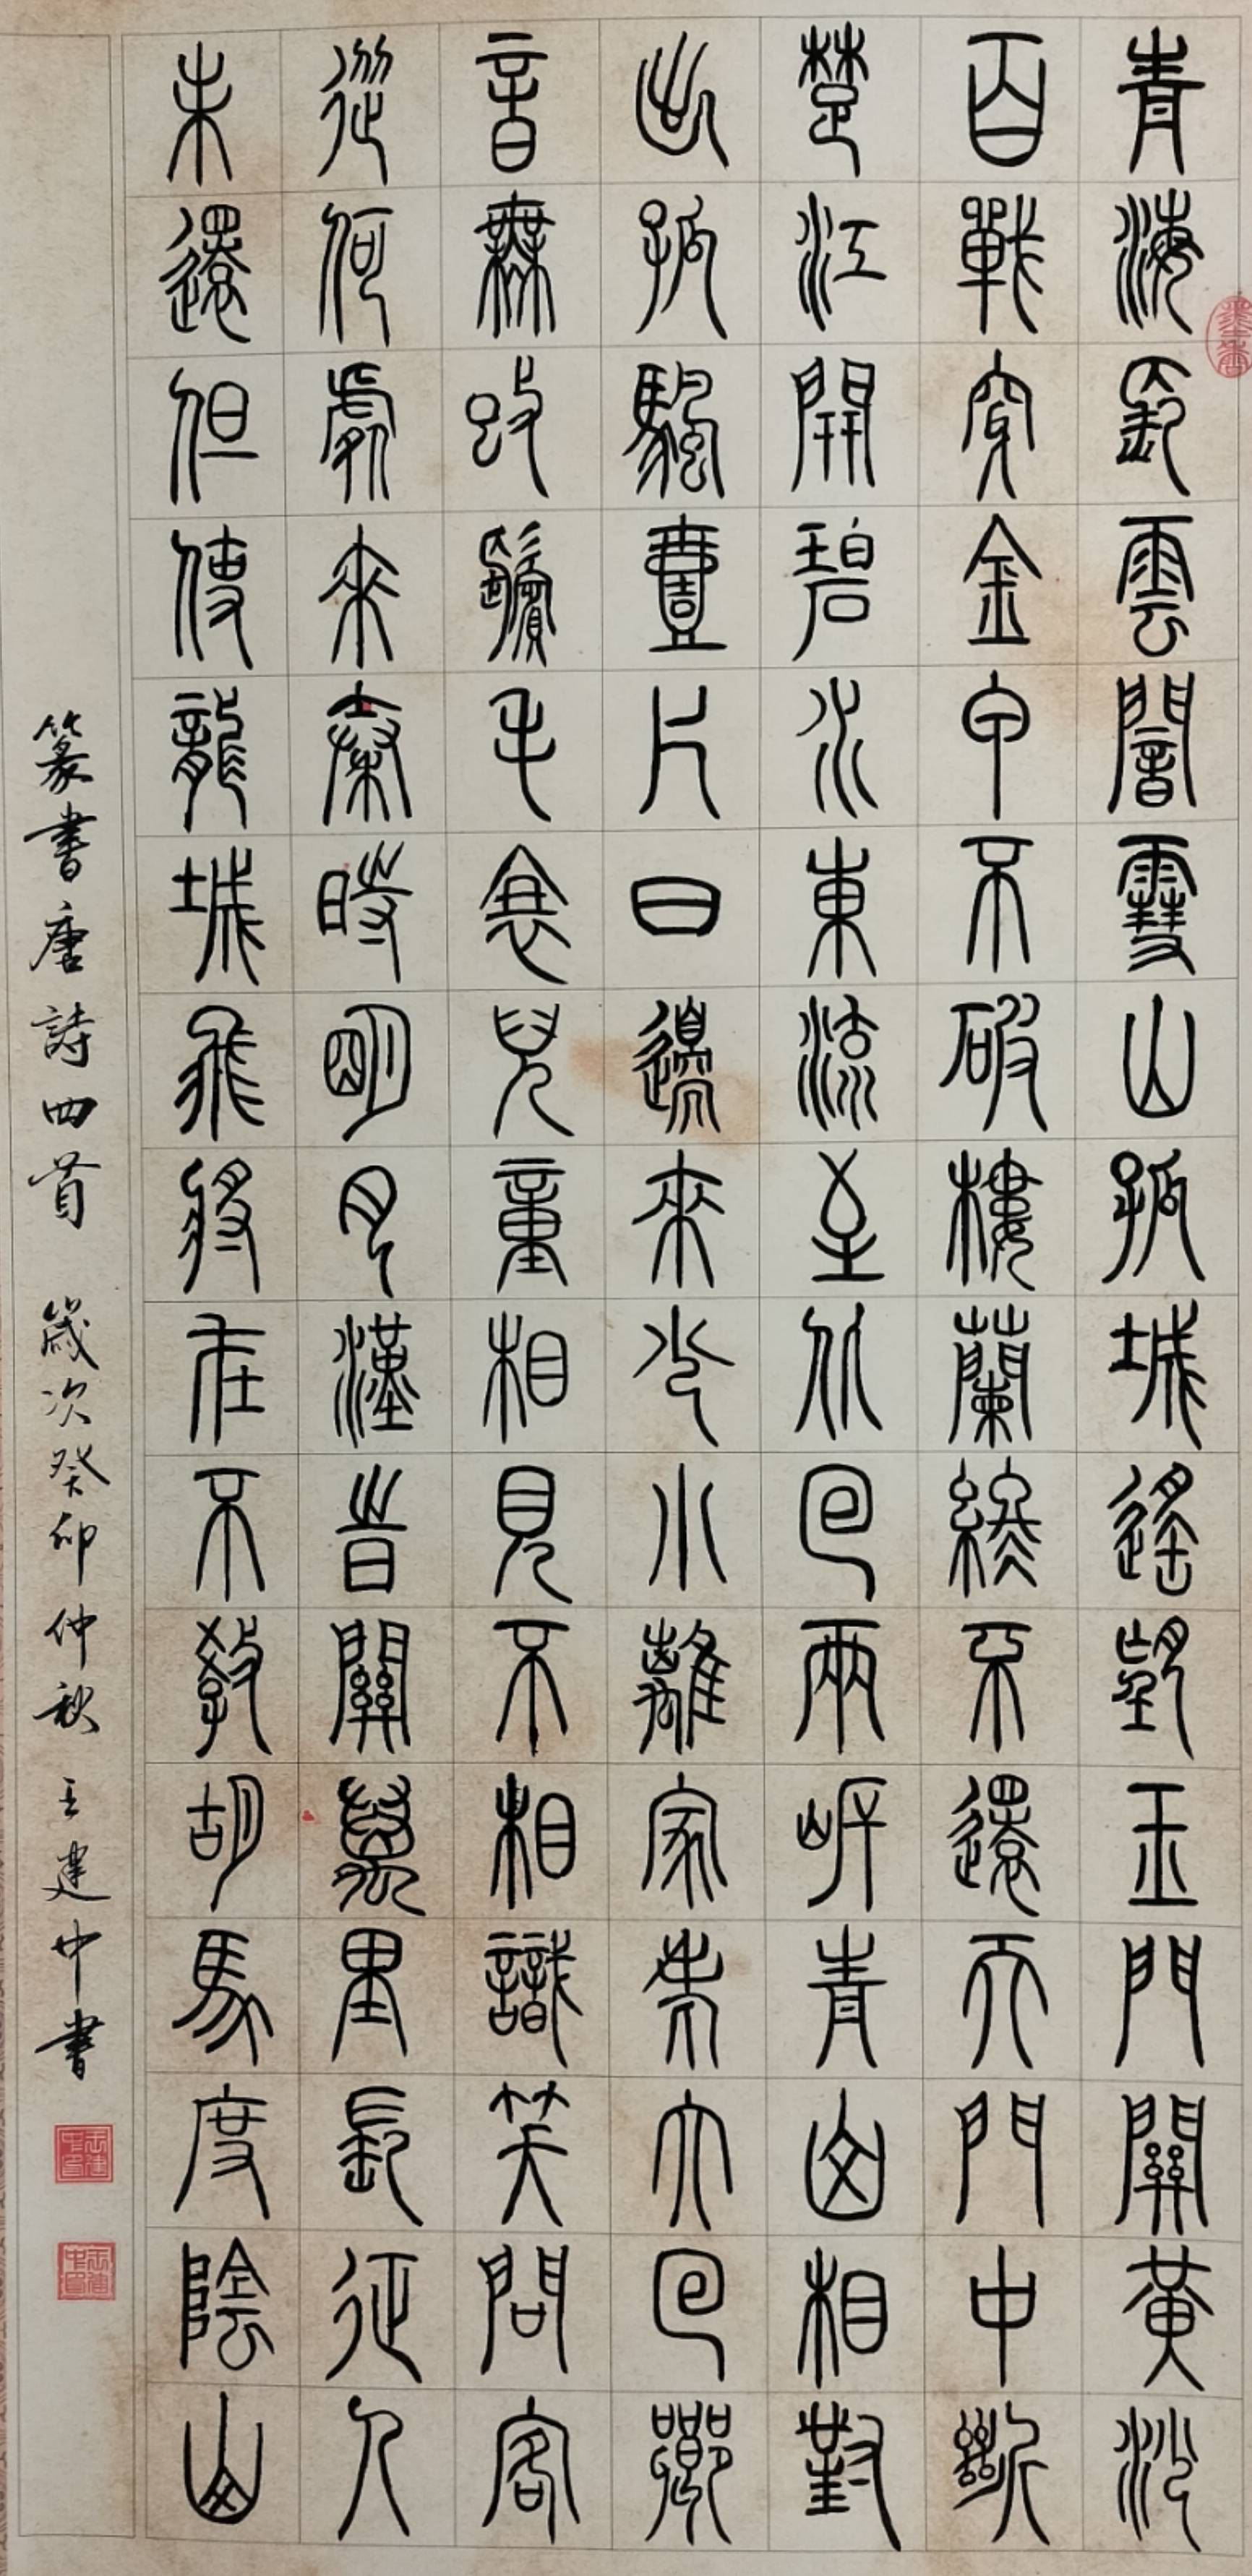 青海長雲闇雪山孤城遙望玉門關黃沙
百戰穿金甲不破樓蘭終不還天門中斷
楚江開碧水東流至北回兩岸青山相對
出孤颿壹片日邊來少小離家老大回鄉
音無改鬢毛衰兒童相見不相識笑問客
從何處來秦時明月漢旹關萬里長征人
未還但使龍城飛將在不教胡馬度陰山
篆書唐詩四首 歲次癸卯仲秋 王建中書